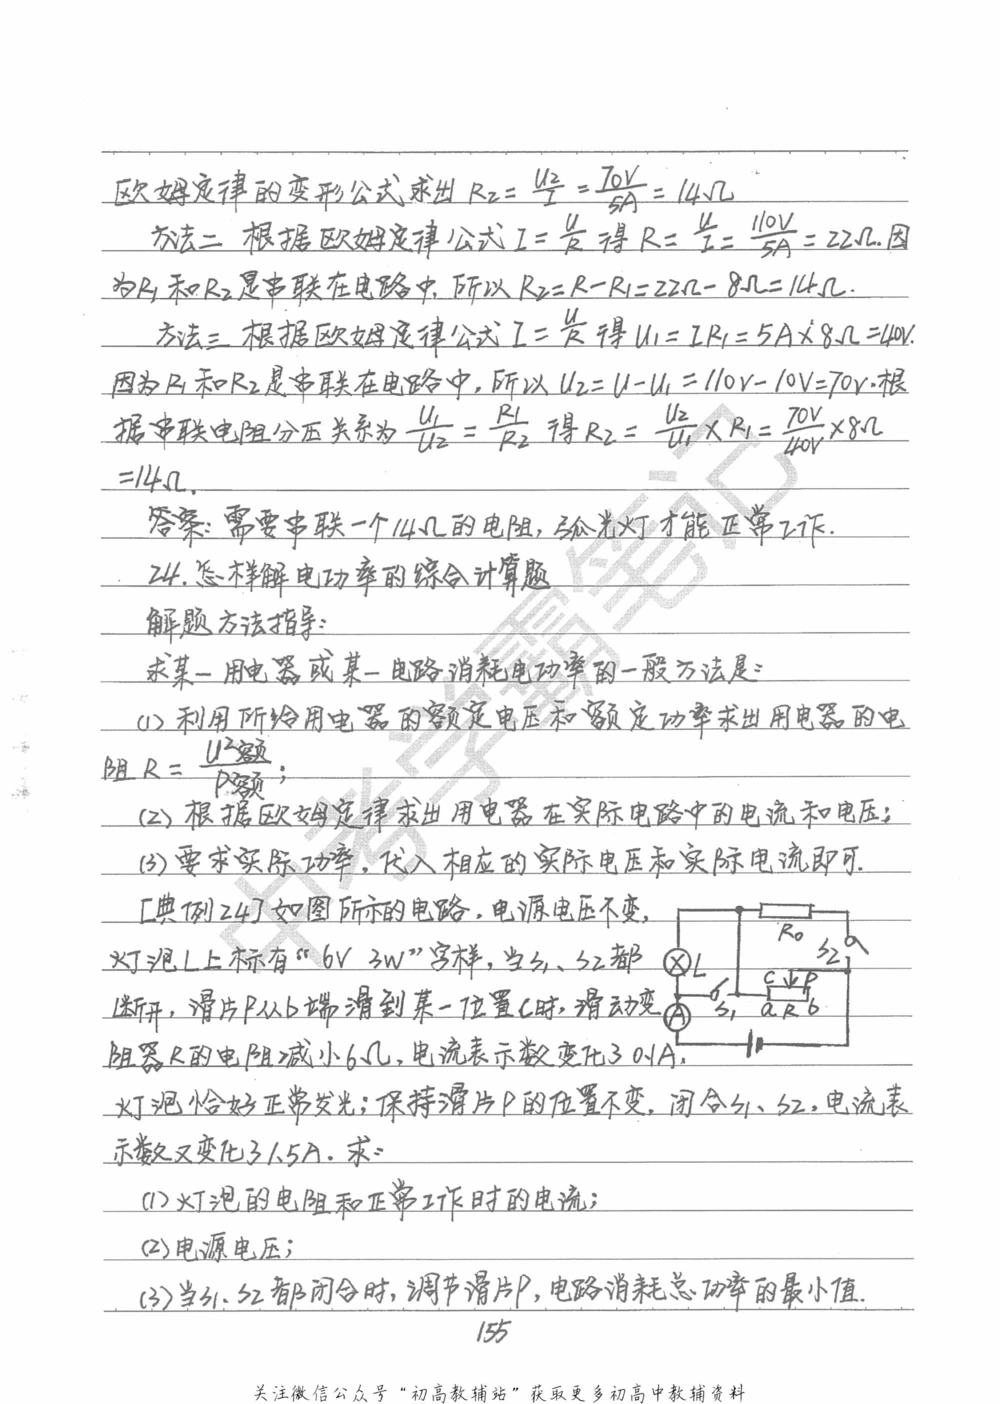 欧姆定律的变形公式求出 R2=U2/I=70V/5A=14Ω
方法二 根据欧姆定律公式 I=U/R 得 R=U/I=110V/5A=22Ω.因
为R1和R2是串联在电路中,所以 R2=R-R1=22Ω-8Ω=14Ω.
方法三 根据欧姆定律公式 I=U/R 得 U1=IR1=5A×8Ω=40V.
因为R1和R2是串联在电路中,所以 U2=U-U1=110V-10V=70V.根
据串联电阻分压关系为 U1/U2=R1/R2 得 R2=U2/U1×R1=70V/40V×8Ω
=14Ω.
答案:需要串联一个14Ω的电阻,弧光灯才能正常工作.
24.怎样解电功率的综合计算题
解题方法指导:
求某一用电器或某一电路消耗电功率的一般方法是:
(1)利用所给用电器的额定电压和额定功率求出用电器的电
阻 R=U²额/P额;
(2)根据欧姆定律求出用电器在实际电路中的电流和电压;
(3)要求实际功率,代入相应的实际电压和实际电流即可.
[典例24]如图所示的电路,电源电压不变,
灯泡L上标有“6V 3W”字样,当S1、S2都
断开,滑片P从b端滑到某一位置C时,滑动变
阻器R的电阻减小6Ω,电流表示数变化了0.1A,
灯泡恰好正常发光;保持滑片P的位置不变,闭合S1、S2,电流表
示数又变化了1.5A.求:
(1)灯泡的电阻和正常工作时的电流;
(2)电源电压;
(3)当S1、S2都闭合时,调节滑片P,电路消耗总功率的最小值.
R0
S2
L
C P
S1 a R b
A
155
关注微信公众号“初高教辅站”获取更多初高中教辅资料
中考学霸笔记